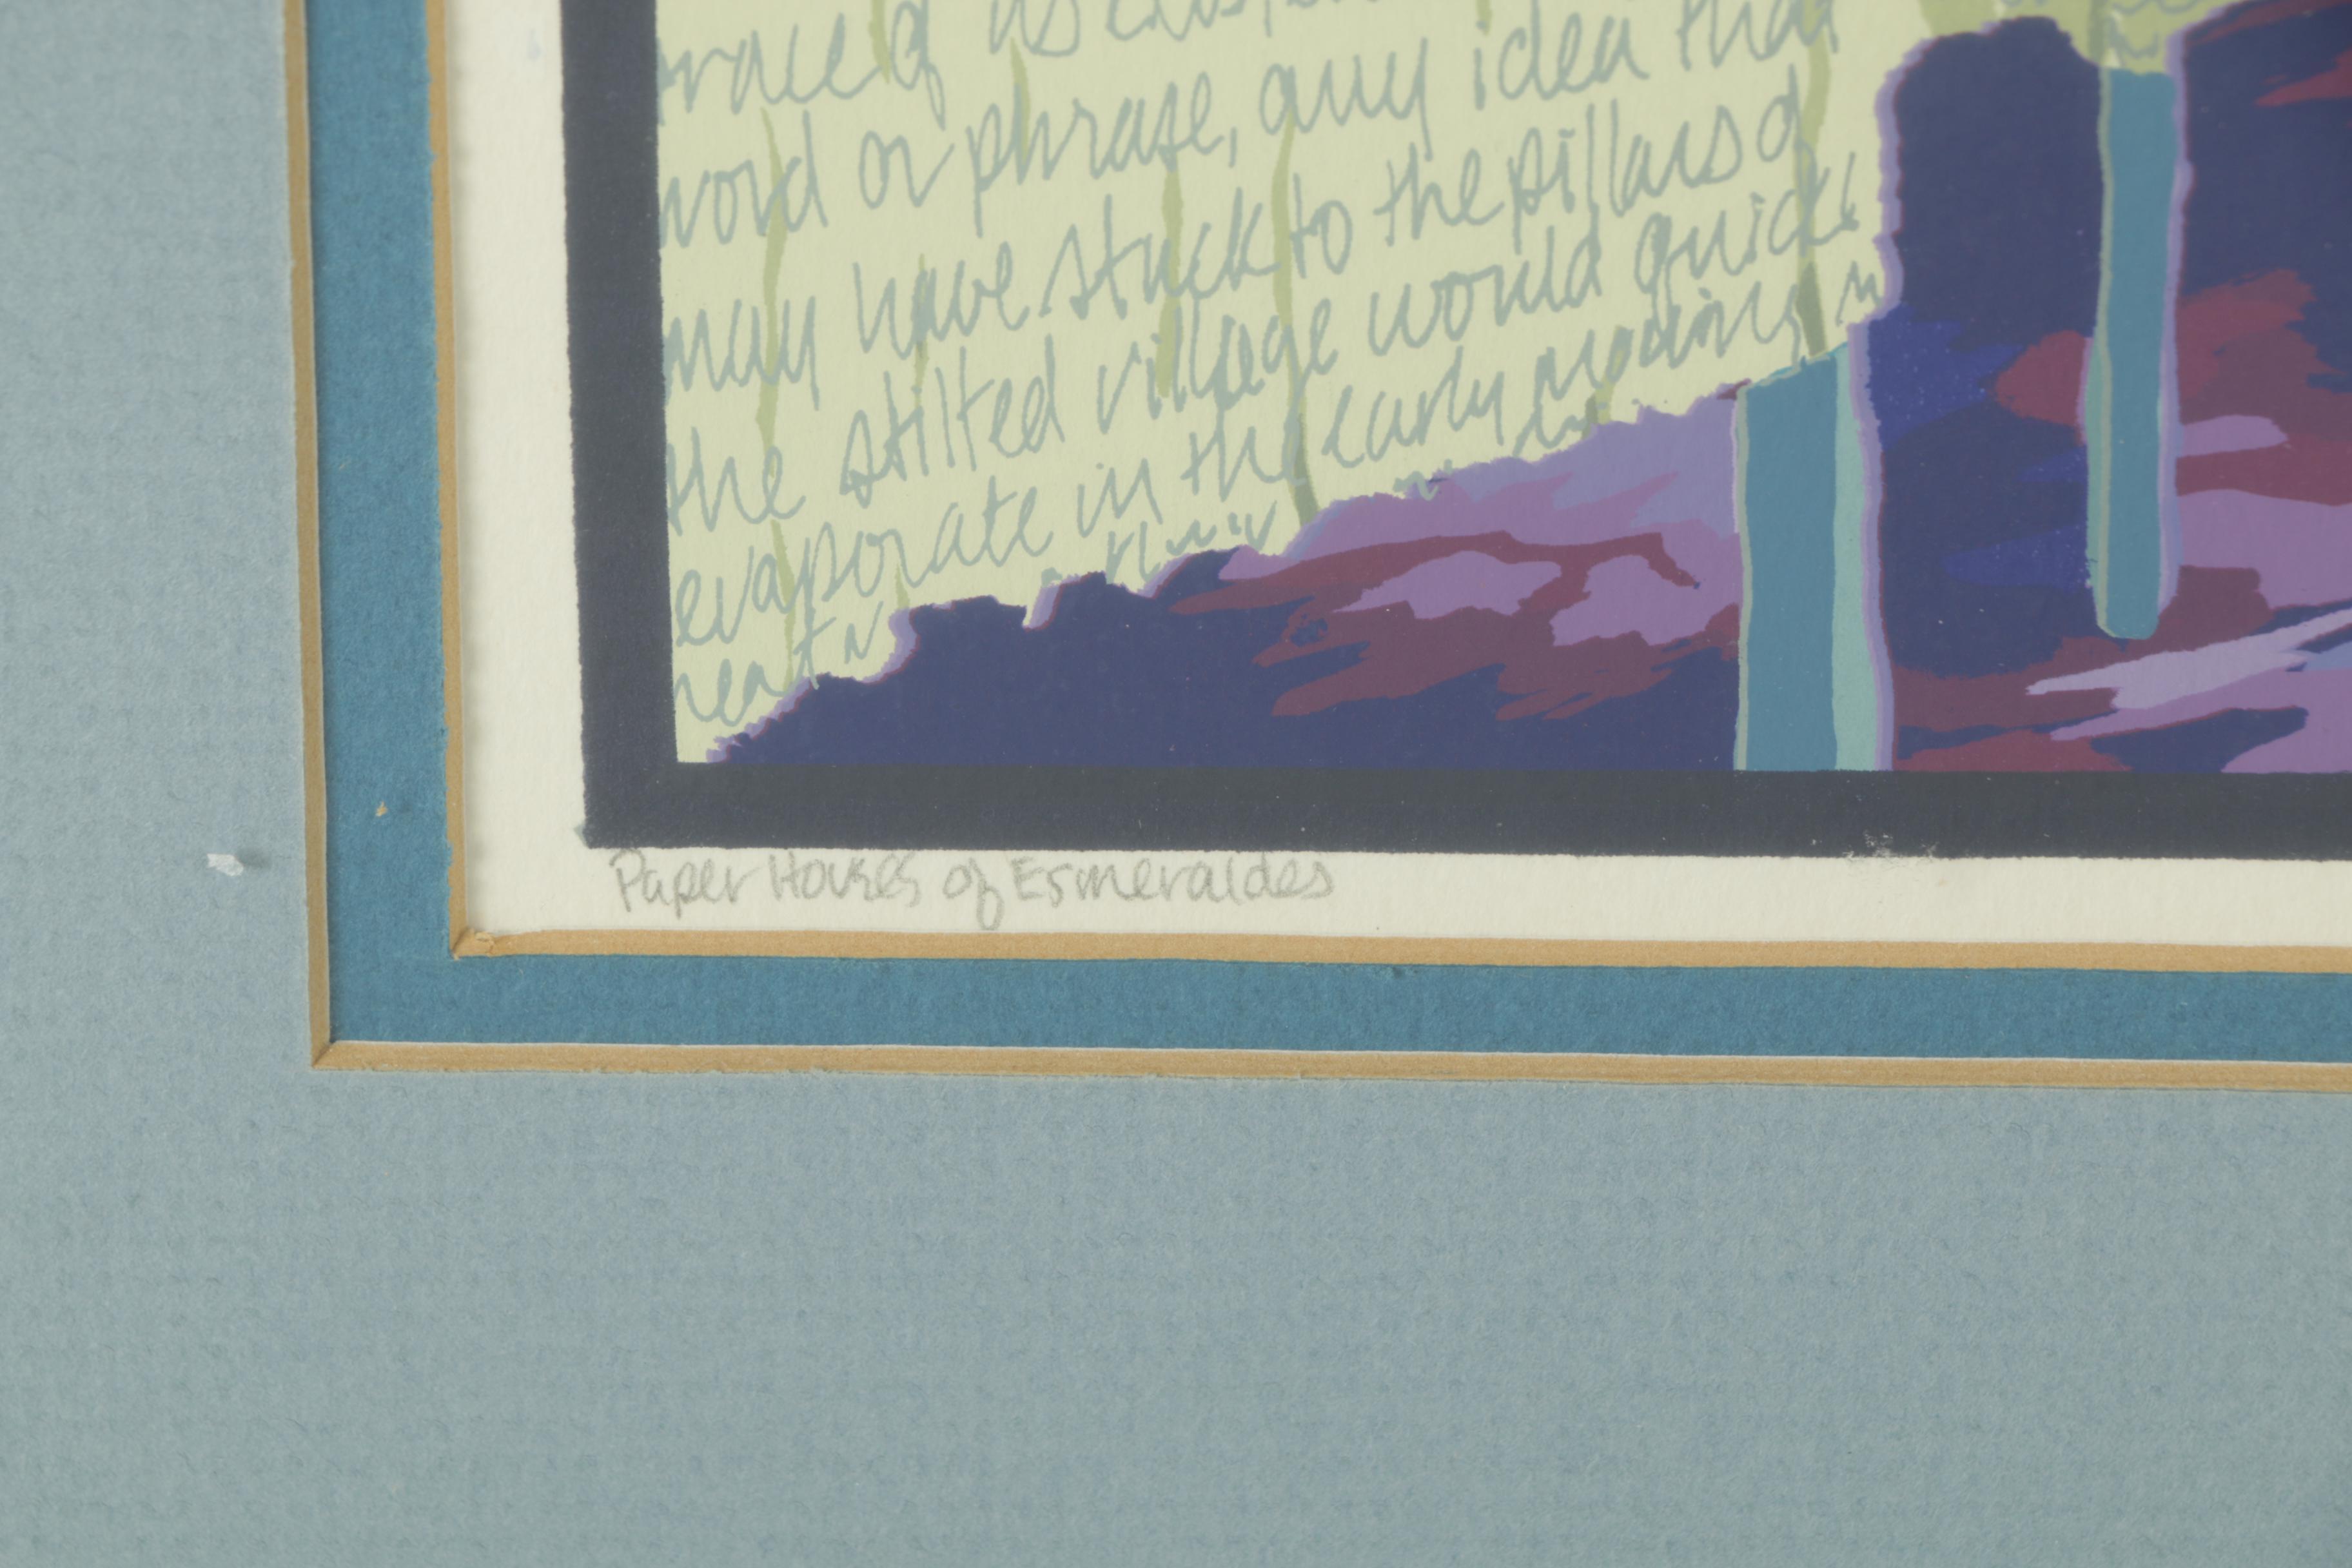 word or phrase, any idea that
may have stuck to the pillars of
the stilted village would quickly
evaporate in the early morning
Paper Houses of Esmeraldes